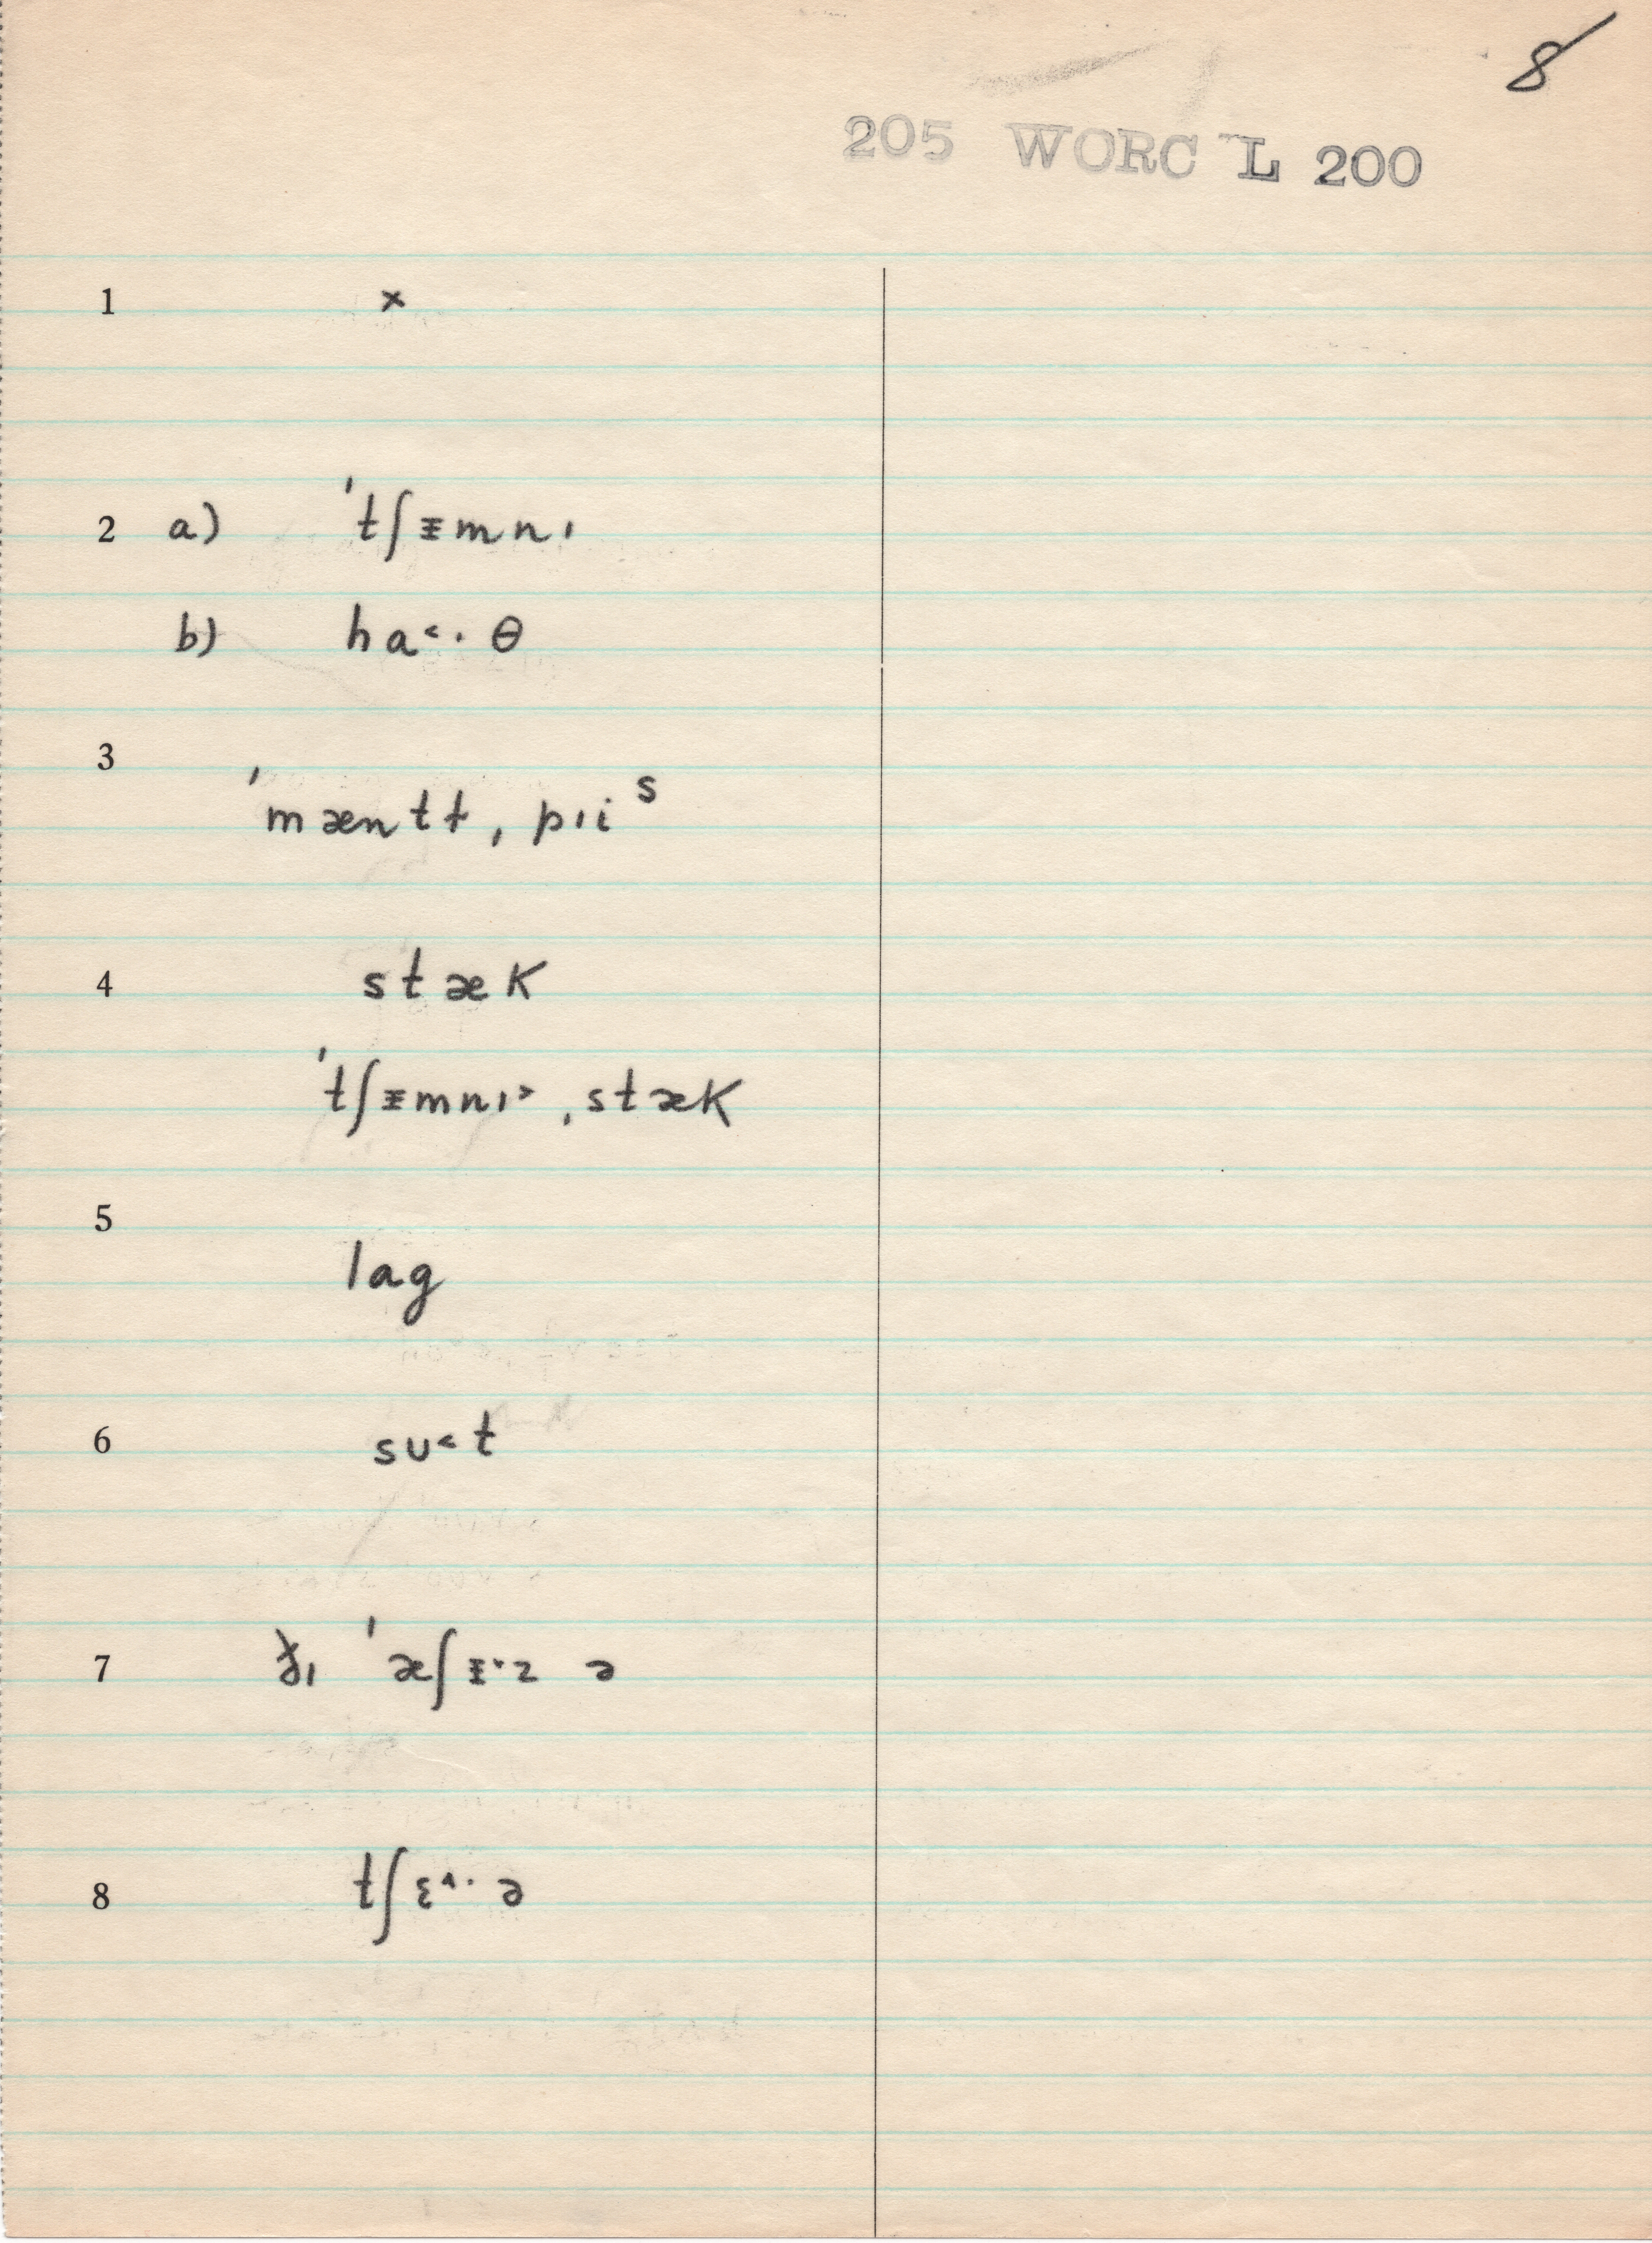 8
205 WORC L 200
1 x
2 a) ˈtʃɪ̵mnɪ
b) ha˂· θ
3
ˈmæntɫ ˌpɹis
4 stæk
ˈtʃɪ̵mnɪ˃ ˌstæk
5
lag
6 sʊ˂t
7 ðɪ ˈæʃɪ̵˅z ə
8 tʃɛ˄· ə